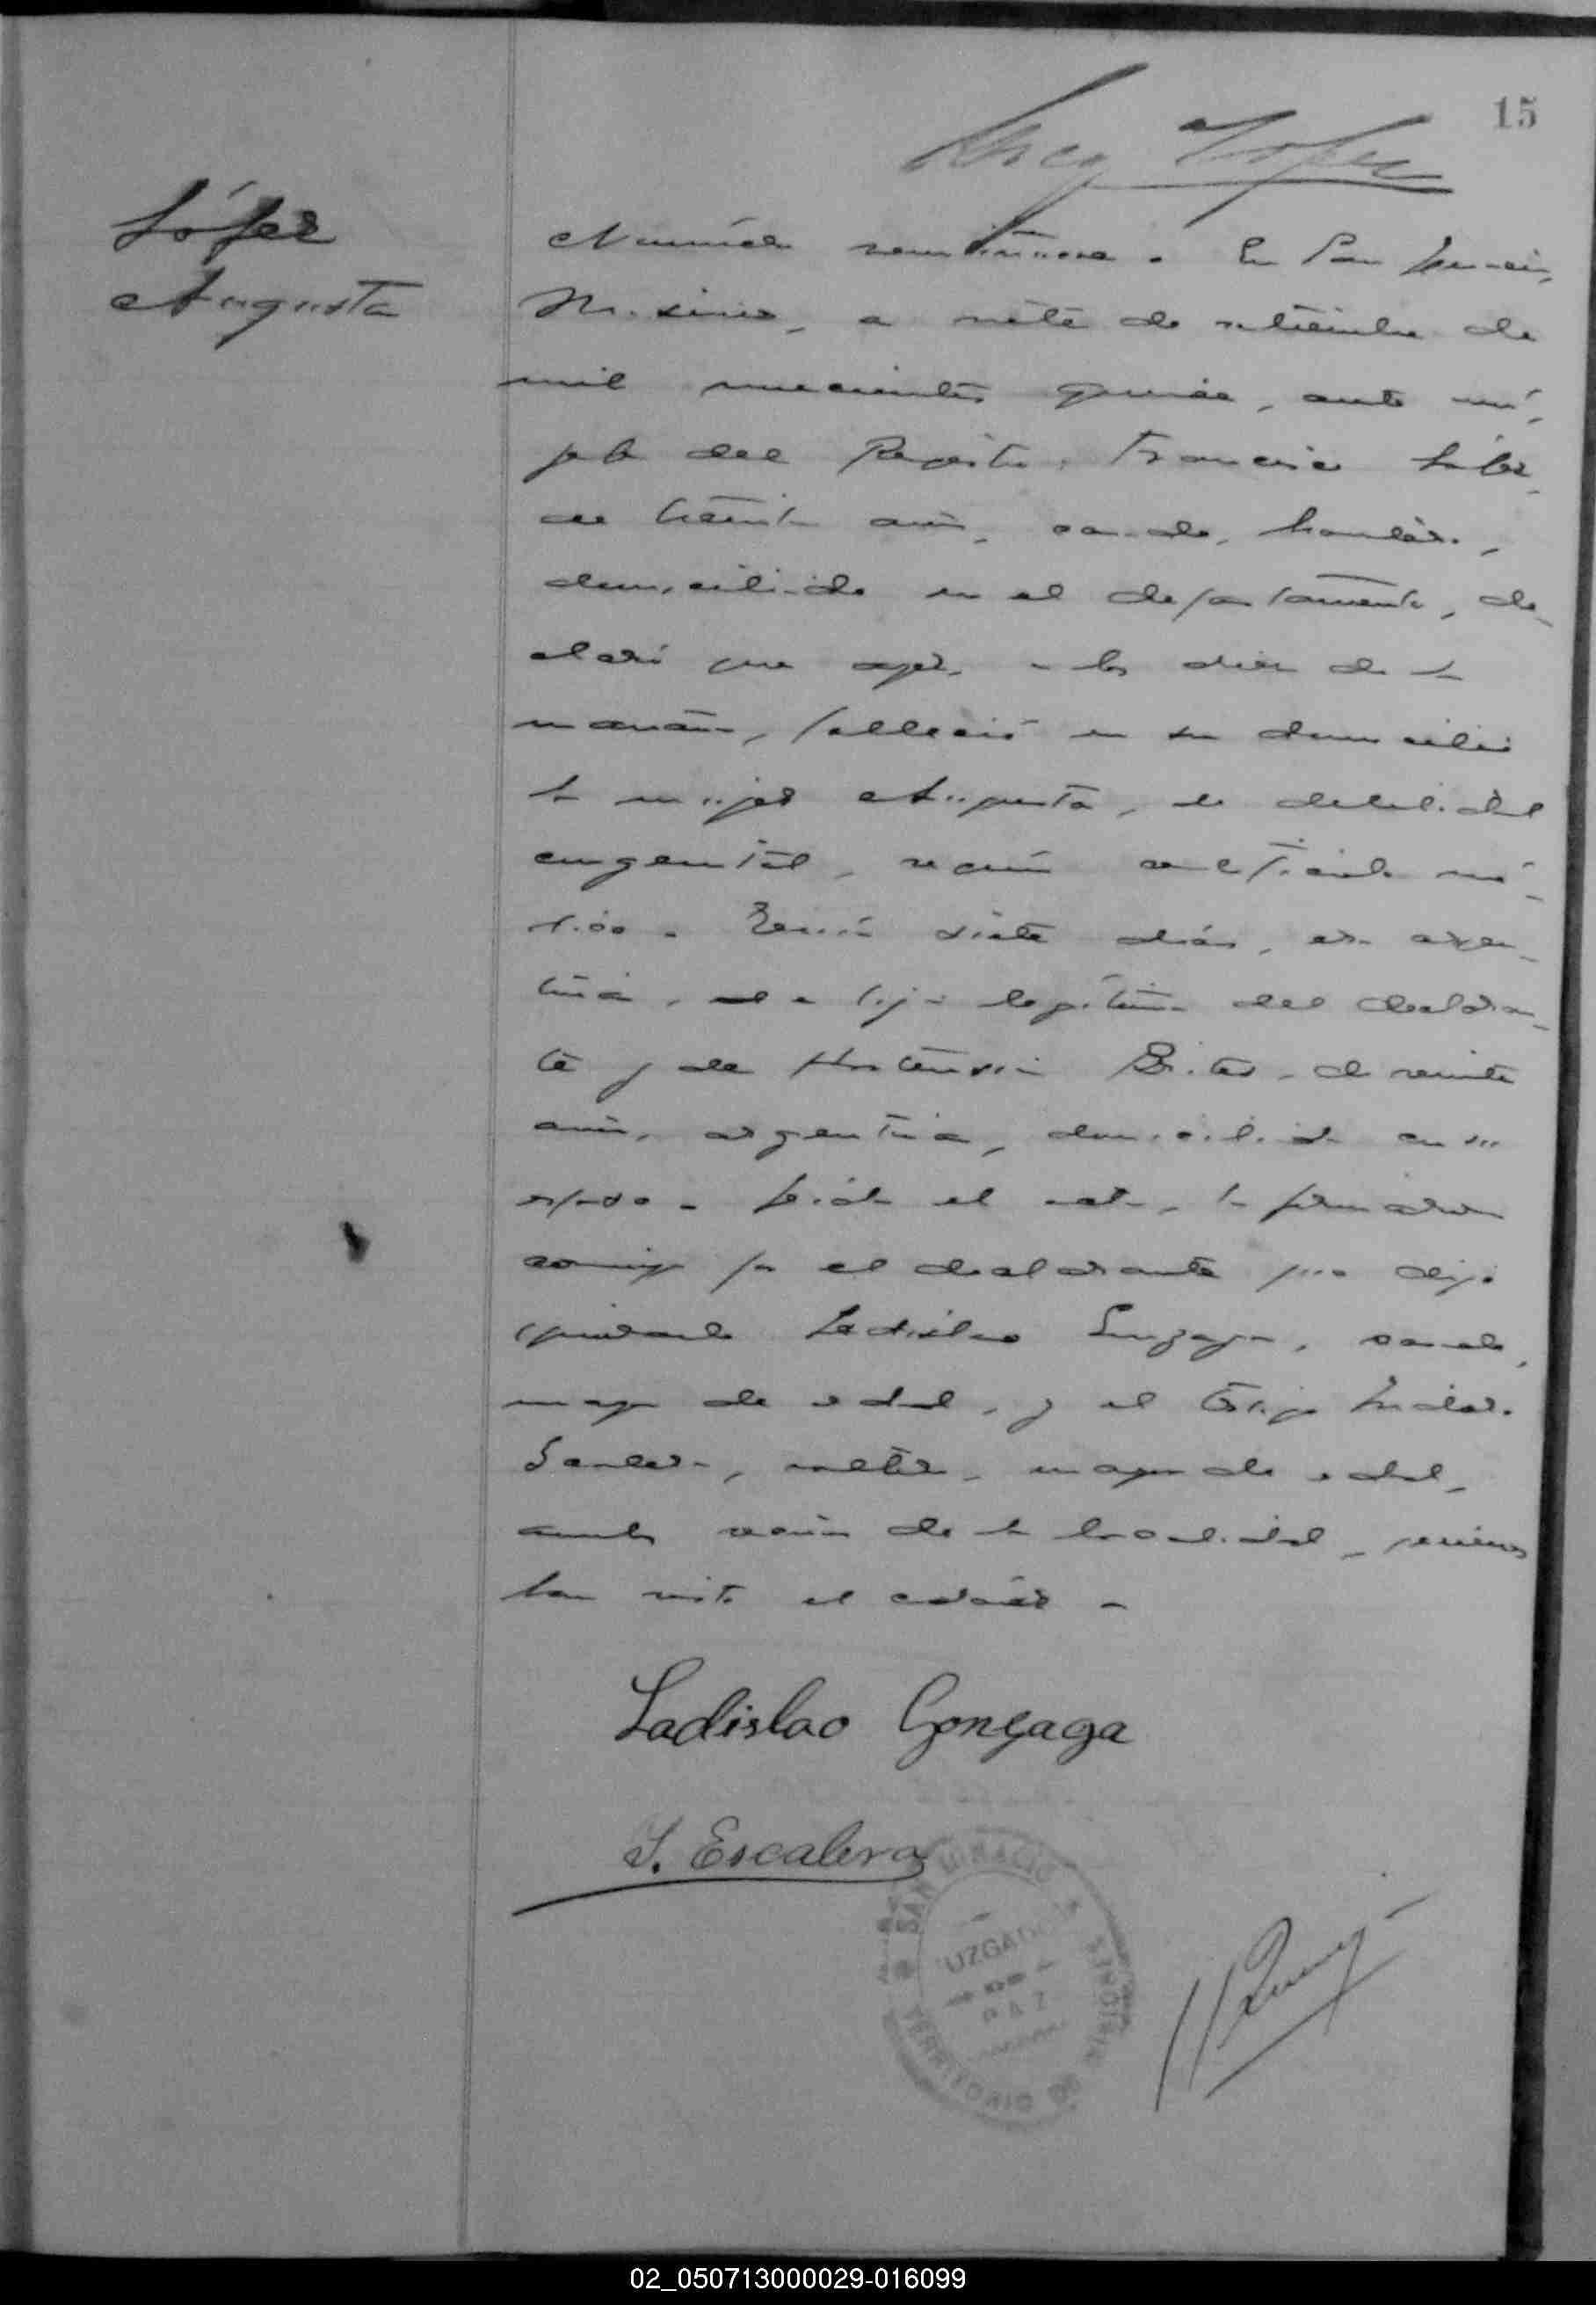 15
López
Augusta
Número veintinueve. En San Ignacio,
Misiones, a siete de setiembre de
mil novecientos quince, ante mí,
jefe del Registro, Francisco López,
de treinta años, casado,
domiciliado en el departamento, de-
claró que ayer, a las diez de la
mañana, falleció en su domicilio
la mujer Augusta, de debilidad
congenital, según certificado mé-
dico. Tenía siete días, era argen-
tina, hija legítima del declaran-
te y de Hortensia Brites, de veinte
años, argentina, domiciliada con su
esposo. Leída el acta, la firmaron
conmigo por el declarante que dijo
ignorarlo Ladislao Gonzaga, casado,
mayor de edad, y el testigo
soltero, mayor de edad,
ambos vecinos de la localidad, quienes
han visto el cadáver.
Ladislao Gonçaga
I. Escalera
SAN IGNACIO
JUZGADO DE PAZ
TERRITORIO DE MISIONES
02_050713000029-016099